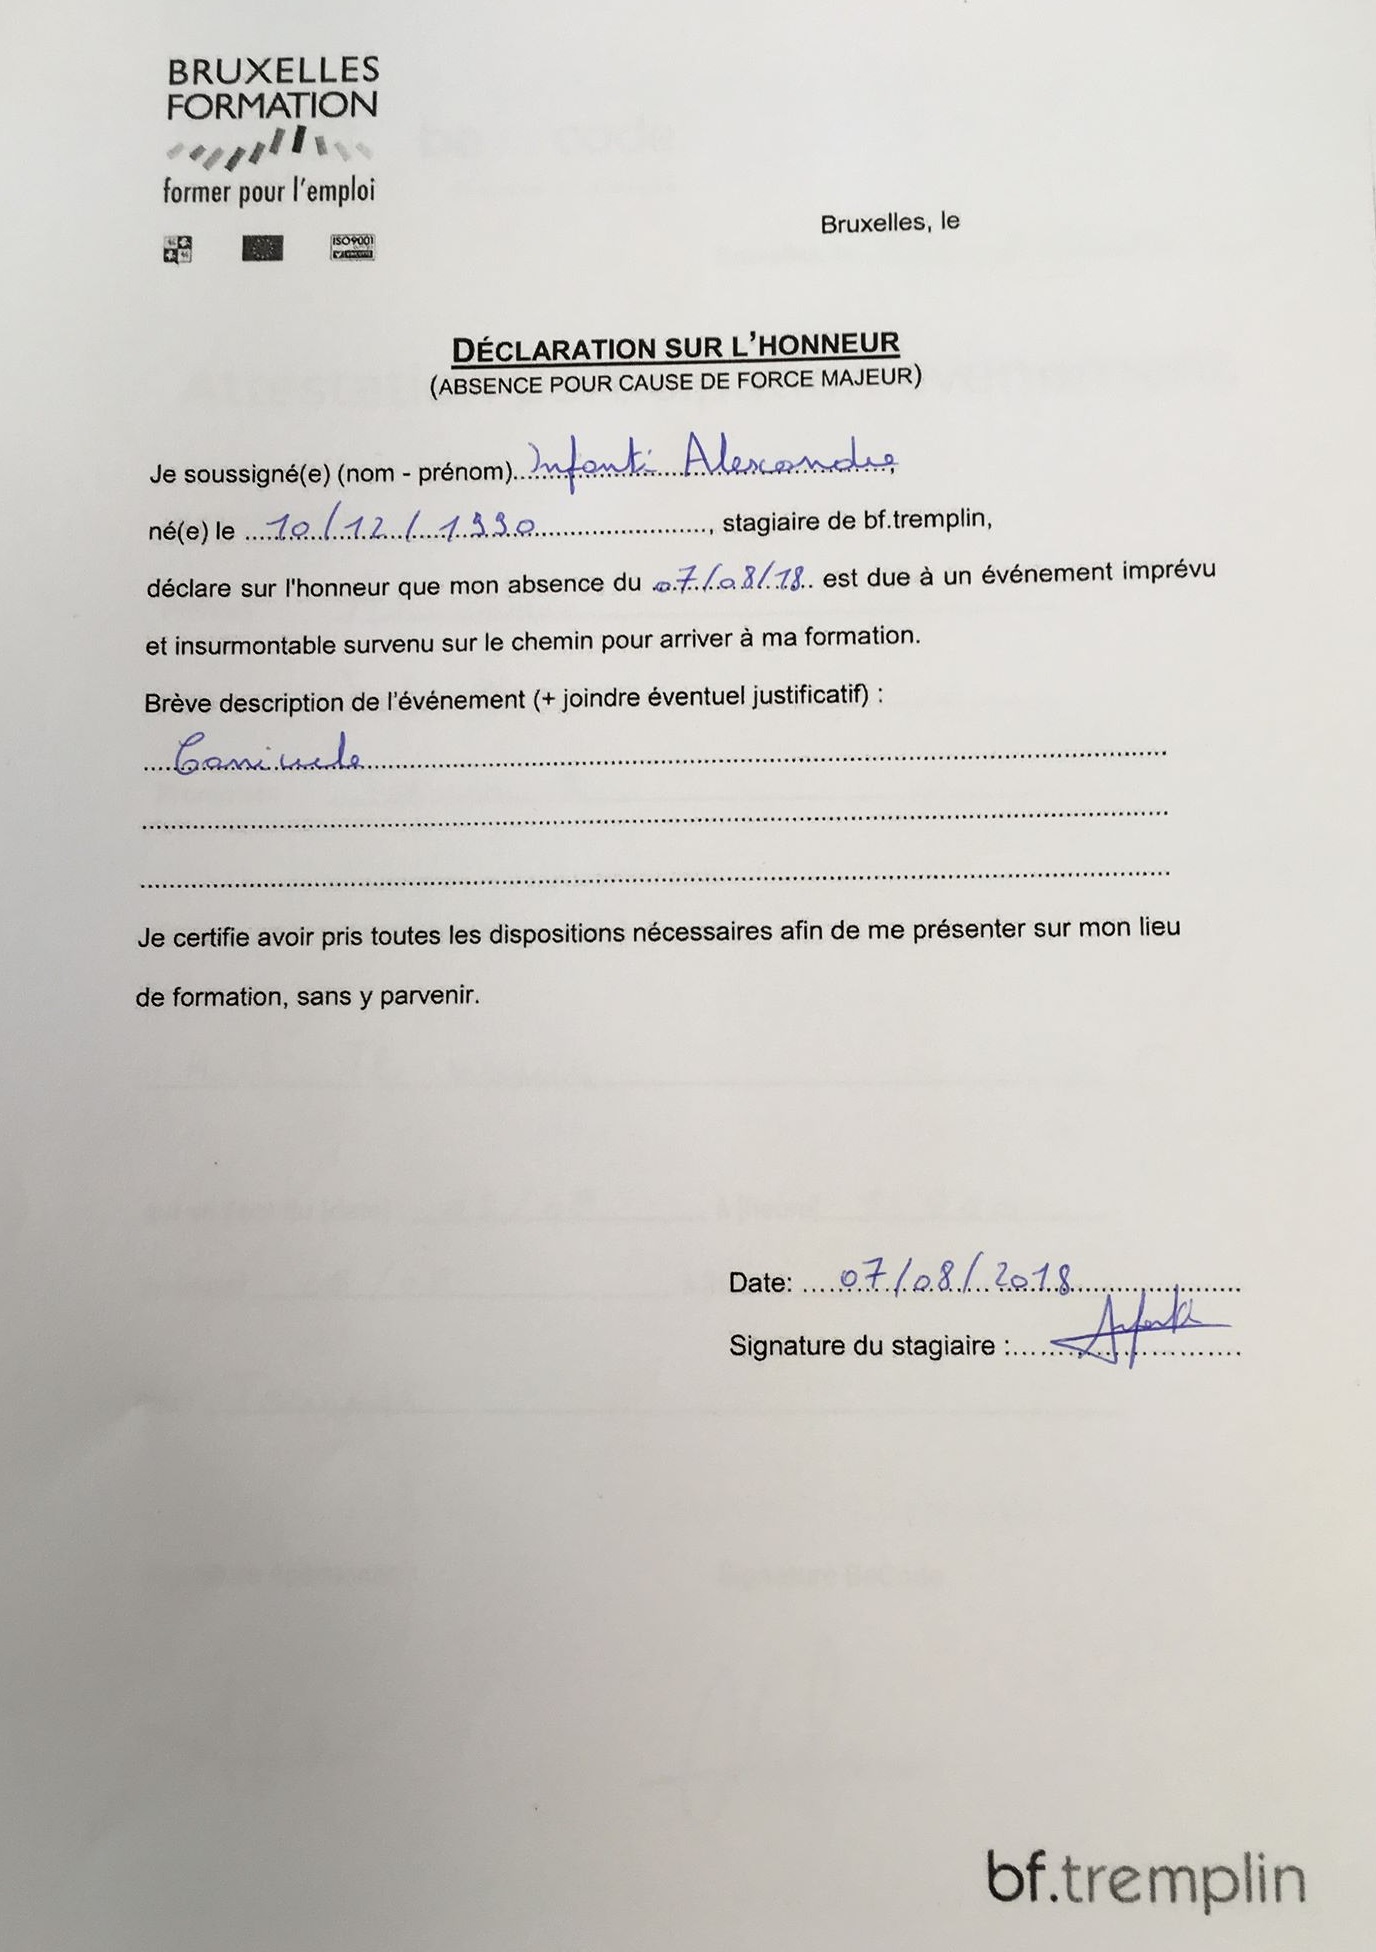 BRUXELLES
FORMATION
former pour l'emploi
ISO9001
Bruxelles, le
DÉCLARATION SUR L'HONNEUR
(ABSENCE POUR CAUSE DE FORCE MAJEUR)
Je soussigné(e) (nom - prénom)...Infanti Alexandre,
né(e) le ....10/12/1990...................., stagiaire de bf.tremplin,
déclare sur l'honneur que mon absence du 07/08/18.. est due à un événement imprévu
et insurmontable survenu sur le chemin pour arriver à ma formation.
Brève description de l'événement (+ joindre éventuel justificatif) :
Canicule
Je certifie avoir pris toutes les dispositions nécessaires afin de me présenter sur mon lieu
de formation, sans y parvenir.
Date: ....07/08/2018
Signature du stagiaire :
bf.tremplin